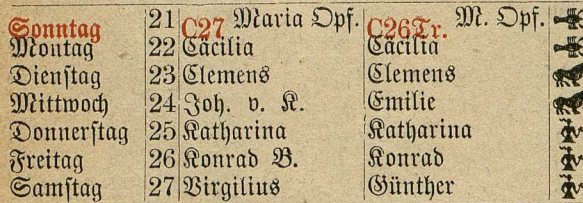 Sonntag 21 C27 Maria Opf. C26Tr. M. Opf.
Montag 22 Cäcilia Cäcilia
Dienſtag 23 Clemens Clemens
Mittwoch 24 Joh. v. K. Emilie
Donnerſtag 25 Katharina Katharina
Freitag 26 Konrad B. Konrad
Samſtag 27 Virgilius Günther